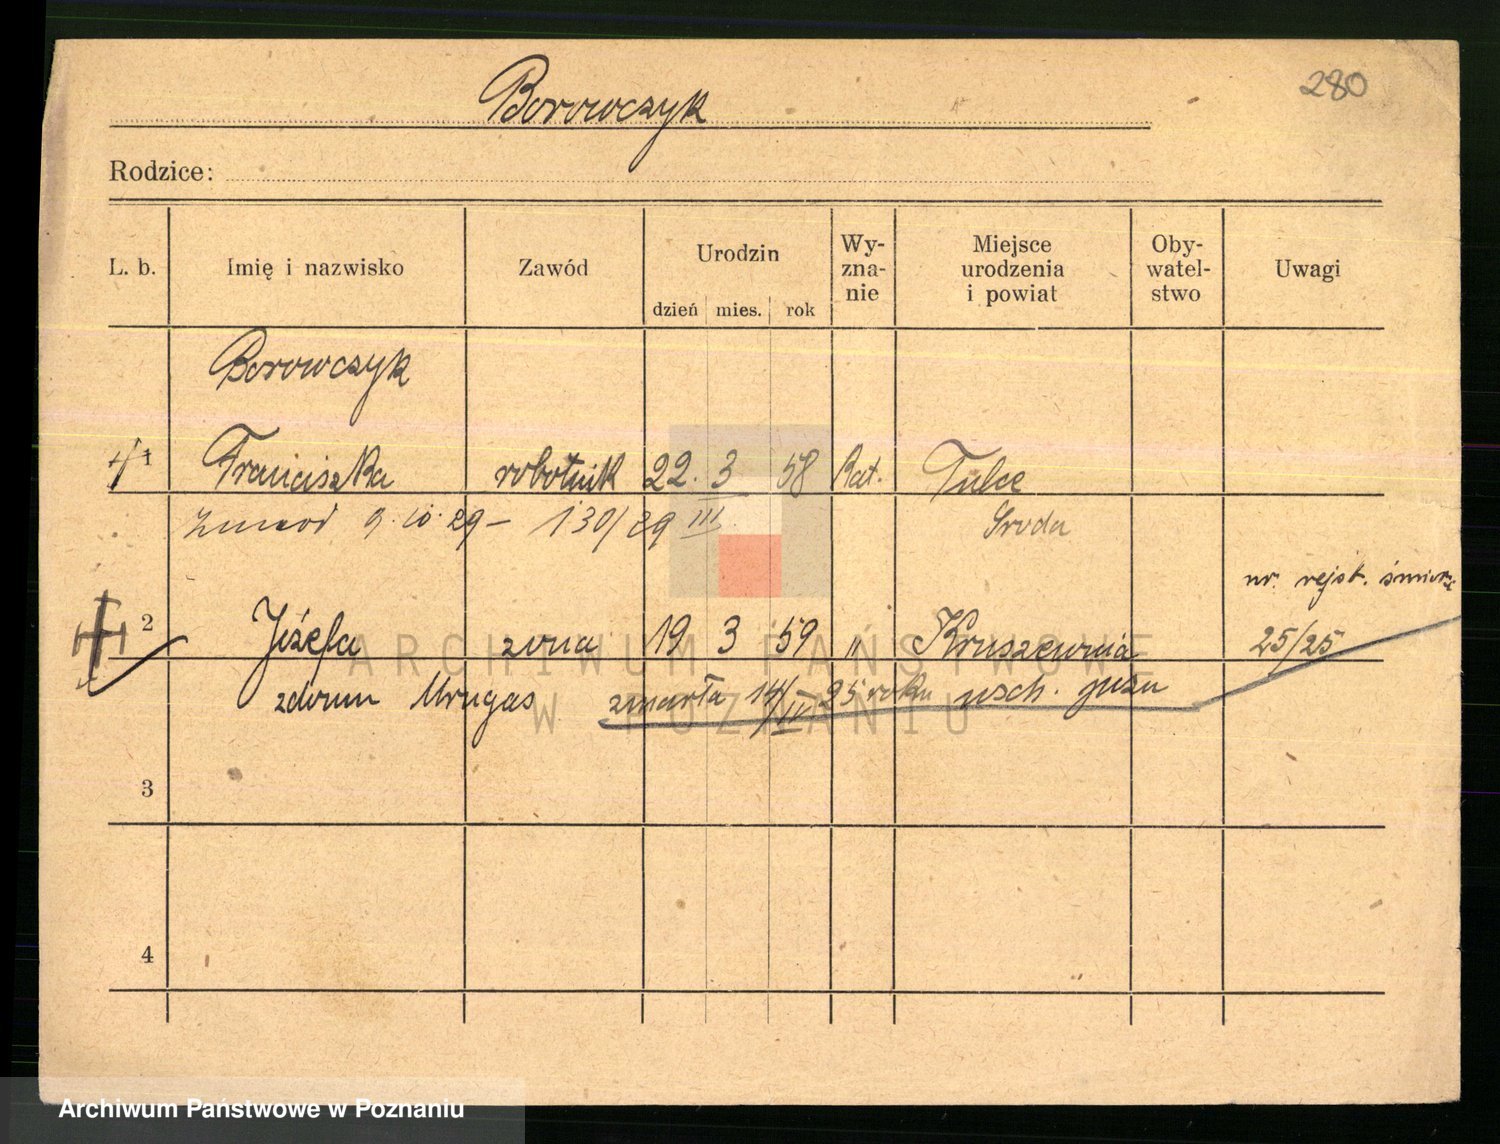 280
Borowczyk
Rodzice:
L. b. Imię i nazwisko Zawód Urodzin dzień mies. rok Wy-zna-nie Miejsce urodzenia i powiat Oby-watel-stwo Uwagi
Borowczyk
1 Franciszka robotnik 22. 3 58 Kat. Tulce
9. 10. 29 – 130/29 III Sroda
nr. rejst.
2 Józefa zona 19 3 59 " Kruszewnia 25/25
zdomu Mrugas zmarła 14/IV 25 roku
3
4
ARCHIWUM PAŃSTWOWE
W POZNANIU
Archiwum Państwowe w Poznaniu